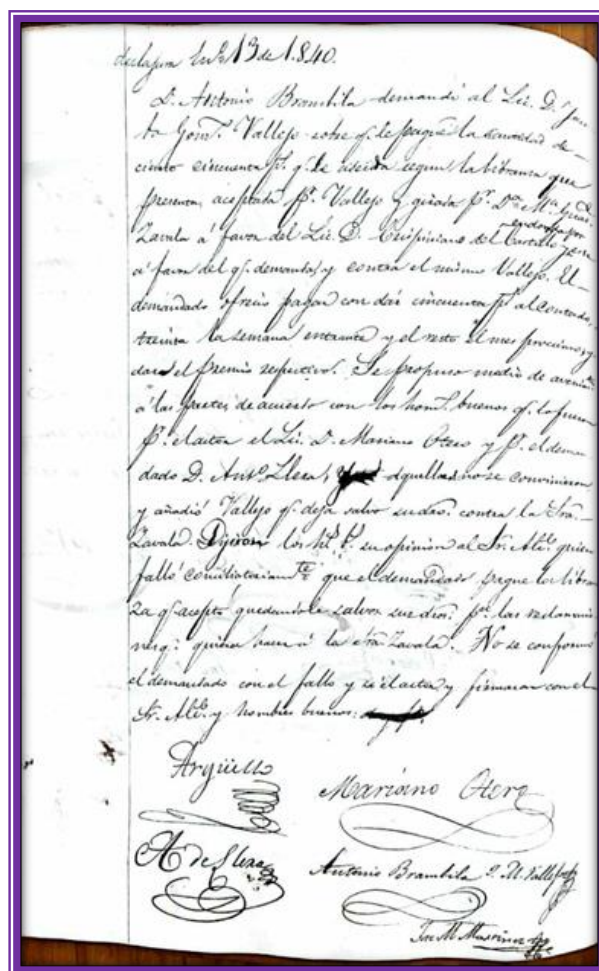 Guadalajara En.º 13 de 1.840.
D. Antonio Brambila demandó al Lic. D. Jacin
to Gonz. Vallejo sobre q. le pague la cantidad de
ciento cincuenta p.s q. le adeuda segun la libranza que
presenta, aceptada p.r Vallejo y girada p.r D.a M.a Guad.e
Zavala á favor del Lic. D. Crispiniano del Castillo y endosada por este
á favor del q. demanda y contra el mismo Vallejo. El
demandado ofreció pagar con dar cincuenta p.s al contado,
treinta la semana entrante y el resto el mes procsimo, y
dará el premio respectivo. Se propuso medio de avenim.to
á las partes de acuerdo con los homb. buenos q. lo fueron
p.r el actor el Lic. D. Mariano Otero y p.r el deman
dado D. Ant.o Llera, aquellas no se convinieron
y añadió Vallejo q. deja salvo su dro. contra la Sra.
Zavala. Dijeron los h. b. su opinion al Sr. Alc.e quien
falló conciliatoriam.te que el demandado pague la libran
za q. aceptó quedandole salvos sus dros. p.a las reclamacio
nes q. quiera hacer á la Sra Zavala. No se conformó
el demandado con el fallo y si el actor y firmaron con el
Sr. Alc.e y hombres buenos.
Argüello
Mariano Otero
A. de Llera
Antonio Brambila J. M. Vallejo